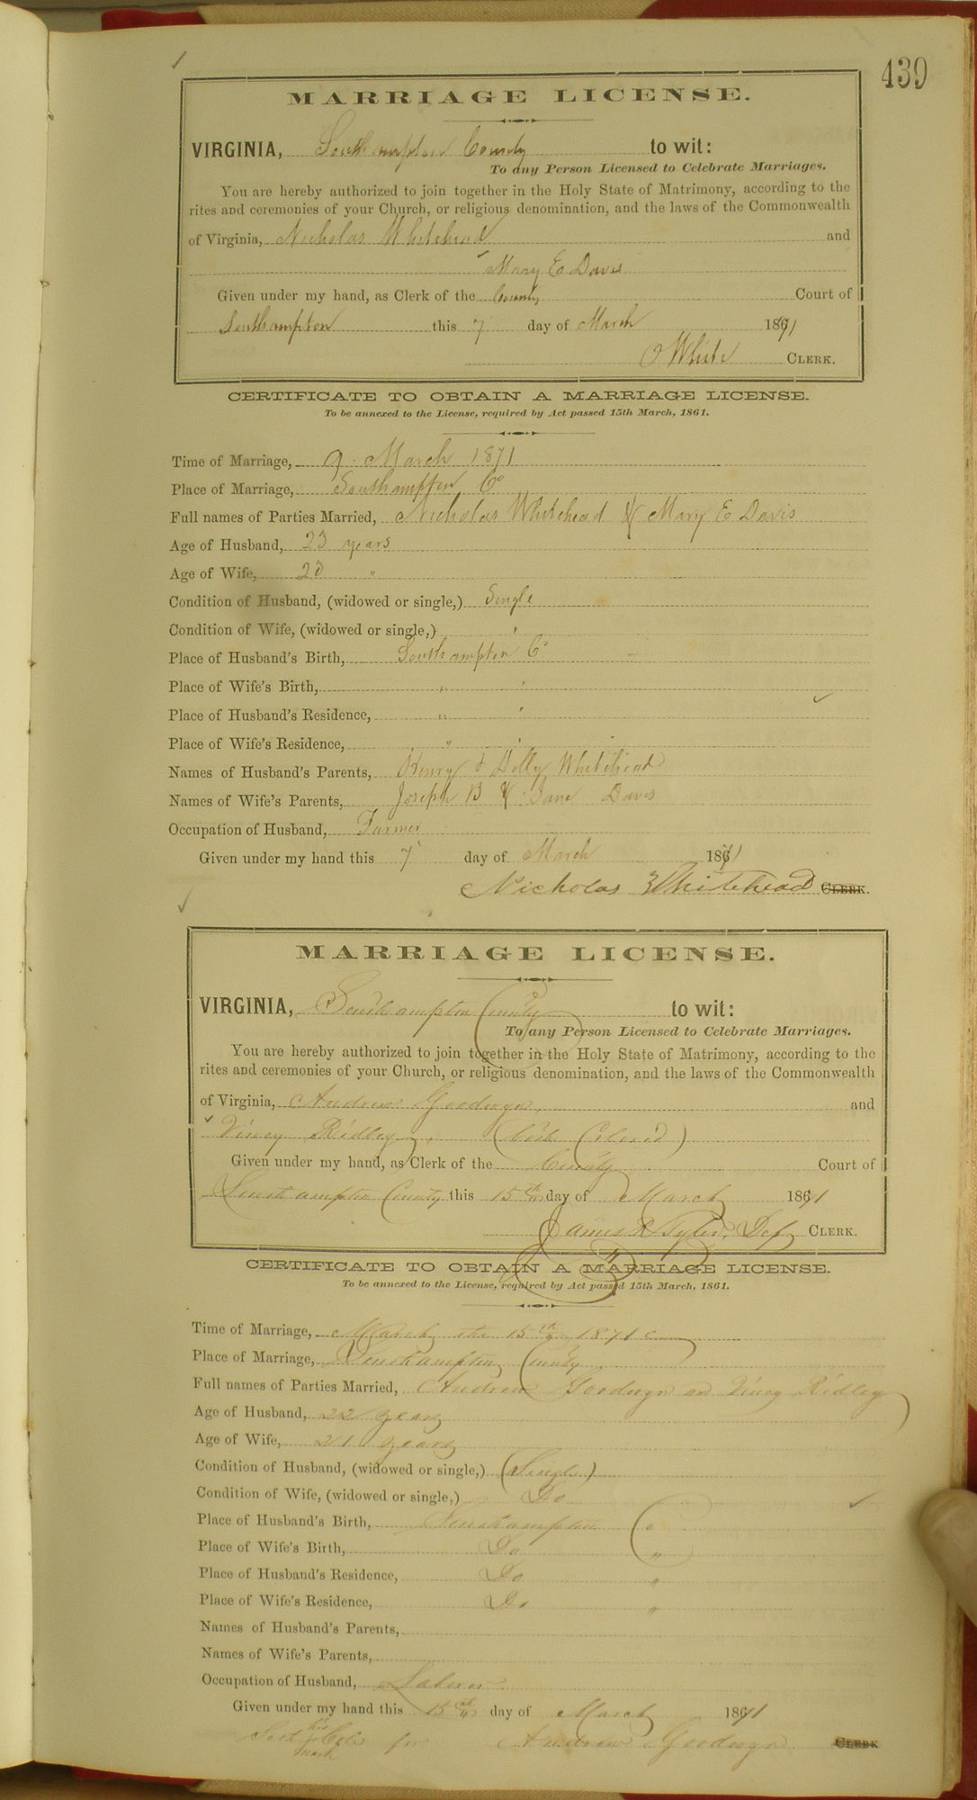 1
439
MARRIAGE LICENSE.
VIRGINIA, Southampton County to wit:
To any Person Licensed to Celebrate Marriages.
You are hereby authorized to join together in the Holy State of Matrimony, according to the
rites and ceremonies of your Church, or religious denomination, and the laws of the Commonwealth
of Virginia, Nicholas Whitehead and
Mary E Davis
Given under my hand, as Clerk of the County Court of
Southampton this 7 day of March 1871
White CLERK.
CERTIFICATE TO OBTAIN A MARRIAGE LICENSE.
To be annexed to the License, required by Act passed 15th March, 1861.
Time of Marriage, 9 March 1871
Place of Marriage, Southampton Co
Full names of Parties Married, Nicholas Whitehead & Mary E Davis
Age of Husband, 23 years
Age of Wife, 23 "
Condition of Husband, (widowed or single,) Single
Condition of Wife, (widowed or single,) "
Place of Husband's Birth, Southampton Co
Place of Wife's Birth, " "
Place of Husband's Residence, " "
Place of Wife's Residence, " "
Names of Husband's Parents, Henry & Dolly Whitehead
Names of Wife's Parents, Joseph B & Jane Davis
Occupation of Husband, Farmer
Given under my hand this 7 day of March 1871
Nicholas Whitehead CLERK.
MARRIAGE LICENSE.
VIRGINIA, Southampton County to wit:
To any Person Licensed to Celebrate Marriages.
You are hereby authorized to join together in the Holy State of Matrimony, according to the
rites and ceremonies of your Church, or religious denomination, and the laws of the Commonwealth
of Virginia, Andrew Goodwyn and
Viney Ridley, (both Colored)
Given under my hand, as Clerk of the County Court of
Southampton County this 15th day of March 1871
James R Tyler, Dep CLERK.
CERTIFICATE TO OBTAIN A MARRIAGE LICENSE.
To be annexed to the License, required by Act passed 15th March, 1861.
Time of Marriage, March the 15th 1871
Place of Marriage, Southampton County
Full names of Parties Married, Andrew Goodwyn and Viney Ridley
Age of Husband, 22 years
Age of Wife, 21 years
Condition of Husband, (widowed or single,) (Single)
Condition of Wife, (widowed or single,) Do
Place of Husband's Birth, Southampton Co
Place of Wife's Birth, Do "
Place of Husband's Residence, Do "
Place of Wife's Residence, Do "
Names of Husband's Parents,
Names of Wife's Parents,
Occupation of Husband, Laborer
Given under my hand this 15th day of March 1871
his
mark for Andrew Goodwyn CLERK